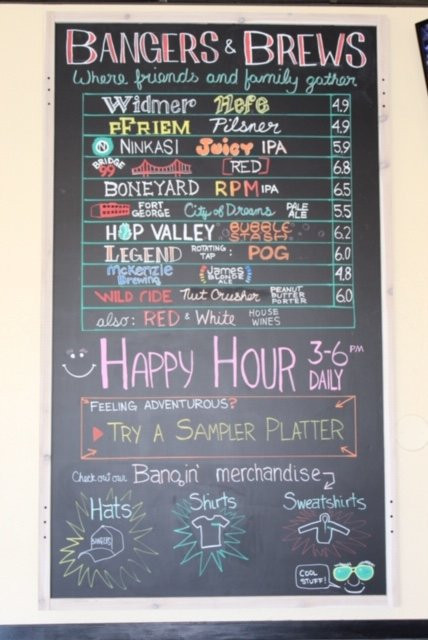 BANGERS & BREWS
Where friends and family gather
Widmer Hefe 4.9
PFRIEM Pilsner 4.9
N NINKASI Juicy IPA 5.9
BRIDGE 99 RED 6.8
BONEYARD RPM IPA 6.5
FORT GEORGE City of Dreams PALE ALE 5.5
HOP VALLEY BUBBLE STASH 6.2
LEGEND ROTATING TAP: POG 6.0
McKenzie Brewing James BLONDE ALE 4.8
WILD RIDE Nut Crusher PEANUT BUTTER PORTER 6.0
also: RED & White HOUSE WINES
HAPPY HOUR 3-6 PM DAILY
FEELING ADVENTUROUS?
TRY A SAMPLER PLATTER
Check out our Bangin' merchandise
Hats Shirts Sweatshirts
BANGERS
COOL STUFF!